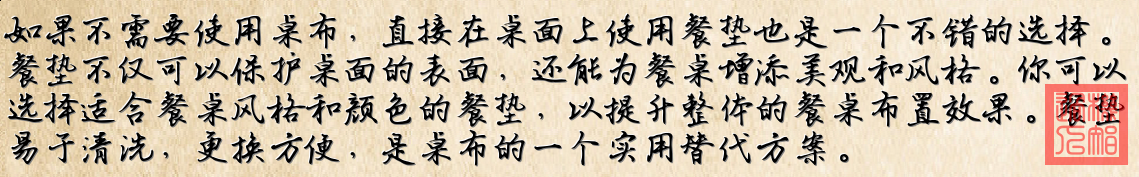 如果不需要使用桌布，直接在桌面上使用餐垫也是一个不错的选择。
餐垫不仅可以保护桌面的表面，还能为餐桌增添美观和风格。你可以
选择适合餐桌风格和颜色的餐垫，以提升整体的餐桌布置效果。餐垫
易于清洗，更换方便，是桌布的一个实用替代方案。